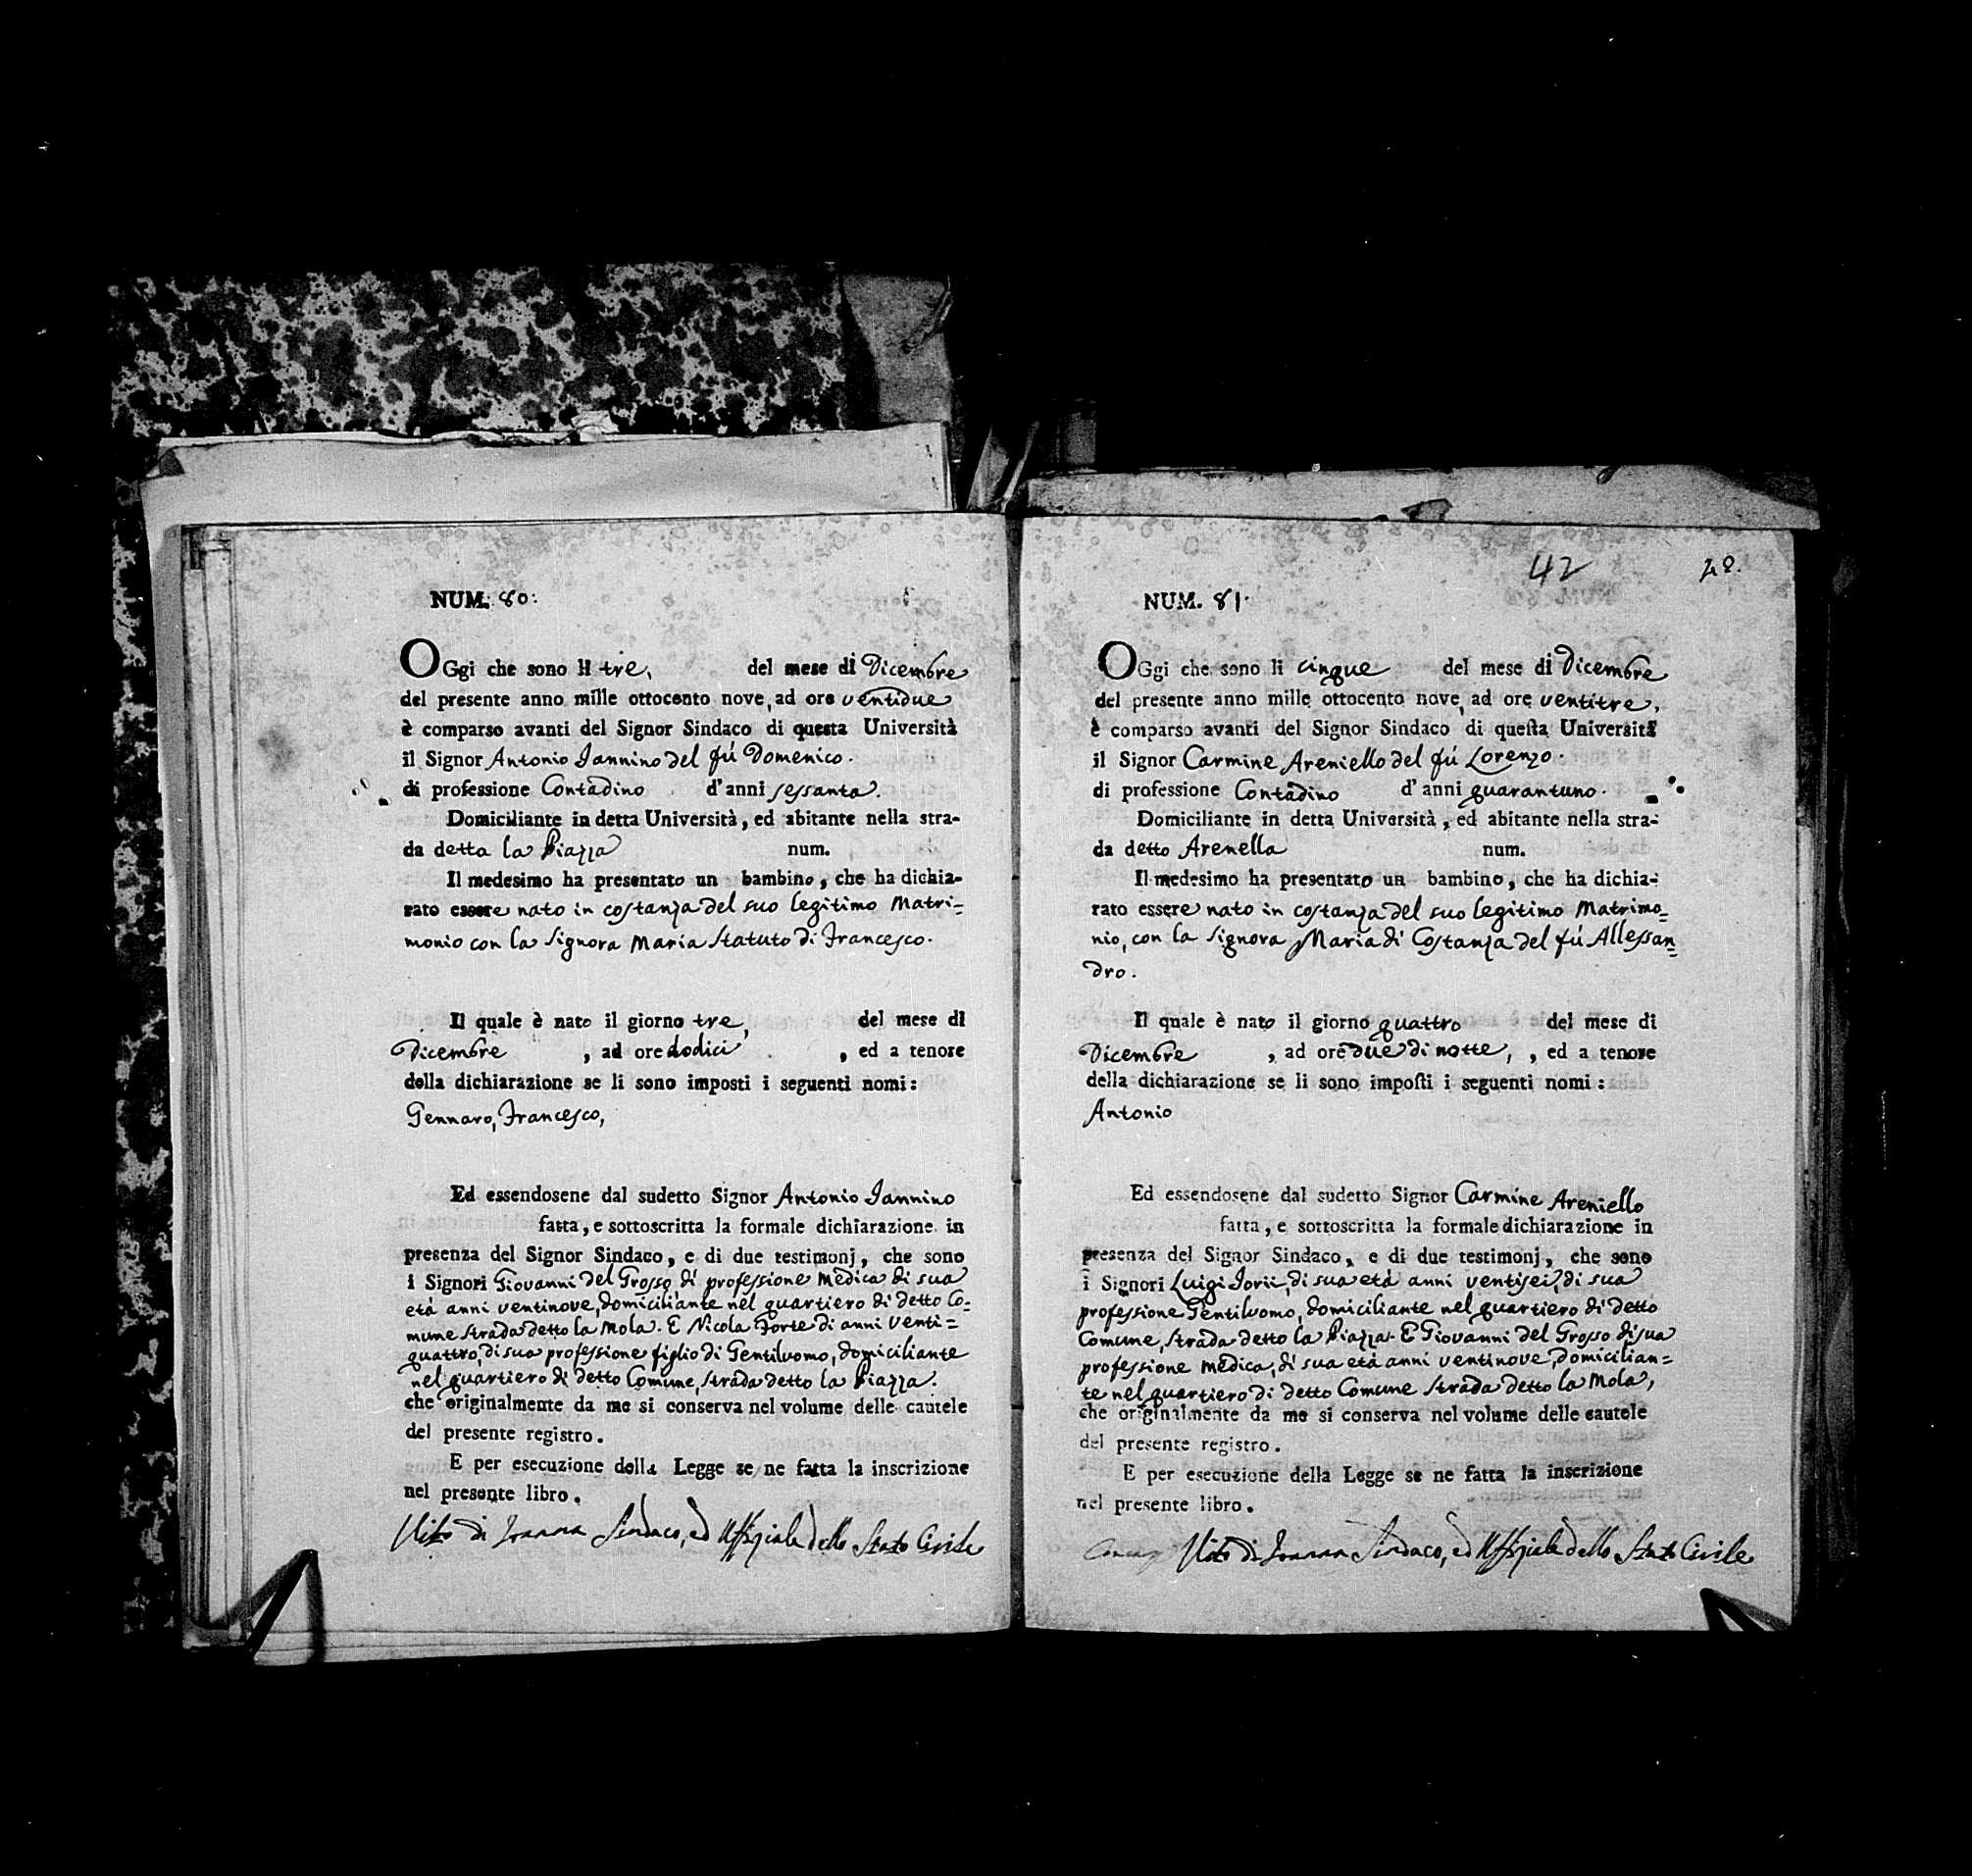 NUM. 80:
OGgi che sono li tre, del mese di Dicembre
del presente anno mille ottocento nove, ad ore ventidue
è comparso avanti del Signor Sindaco di questa Università
il Signor Antonio Jannino del fú Domenico.
di professione Contadino d'anni sessanta.
Domiciliante in detta Università, ed abitante nella stra-
da detta la Piazza num.
Il medesimo ha presentato un bambino, che ha dichia-
rato essere nato in costanza del suo legitimo Matri=
monio con la Signora Maria Statuto di Francesco.
Il quale è nato il giorno tre, del mese di
Dicembre, ad ore dodici, ed a tenore
della dichiarazione se li sono imposti i seguenti nomi:
Gennaro, Francesco,
Ed essendosene dal sudetto Signor Antonio Jannino
fatta, e sottoscritta la formale dichiarazione in
presenza del Signor Sindaco, e di due testimonj, che sono
i Signori Giovanni del Grosso di professione Medica di sua
età anni ventinove, domiciliante nel quartiero di detto Co=
mune strada detto la Mola. E Nicola Forte di anni venti=
quattro, di sua professione figlio di Gentiluomo, domiciliante
nel quartiero di detto Comune, strada detto la Piazza.
che originalmente da me si conserva nel volume delle cautele
del presente registro.
E per esecuzione della Legge se ne fatta la inscrizione
nel presente libro.
Vito di Ioanna Sindaco, ed Uffiziale dello Stato Civile
42 42.
NUM. 81.
OGgi che sono li cinque del mese di Dicembre
del presente anno mille ottocento nove, ad ore ventitre,
è comparso avanti del Signor Sindaco di questa Università
il Signor Carmine Areniello del fú Lorenzo.
di professione Contadino d'anni quarantuno.
Domiciliante in detta Università, ed abitante nella stra-
da detto Arenella num.
Il medesimo ha presentato un bambino, che ha dichia-
rato essere nato in costanza del suo legitimo Matrimo=
nio, con la Signora Maria di Costanza del fú Allessan=
dro.
Il quale è nato il giorno quattro del mese di
Dicembre, ad ore due di notte, , ed a tenore
della dichiarazione se li sono imposti i seguenti nomi:
Antonio
Ed essendosene dal sudetto Signor Carmine Areniello
fatta, e sottoscritta la formale dichiarazione in
presenza del Signor Sindaco, e di due testimonj, che sono
i Signori Luigi Iorii, di sua età anni ventisei, di sua
professione Gentiluomo, domiciliante nel quartiero di detto
Comune, strada detto la Piazza. E Giovanni del Grosso di sua
professione Medica, di sua età anni ventinove, domicilian=
te nel quartiero di detto Comune strada detto la Mola,
che originalmente da me si conserva nel volume delle cautele
del presente registro.
E per esecuzione della Legge se ne fatta la inscrizione
nel presente libro.
Vito di Ioanna Sindaco, ed Uffiziale dello Stato Civile